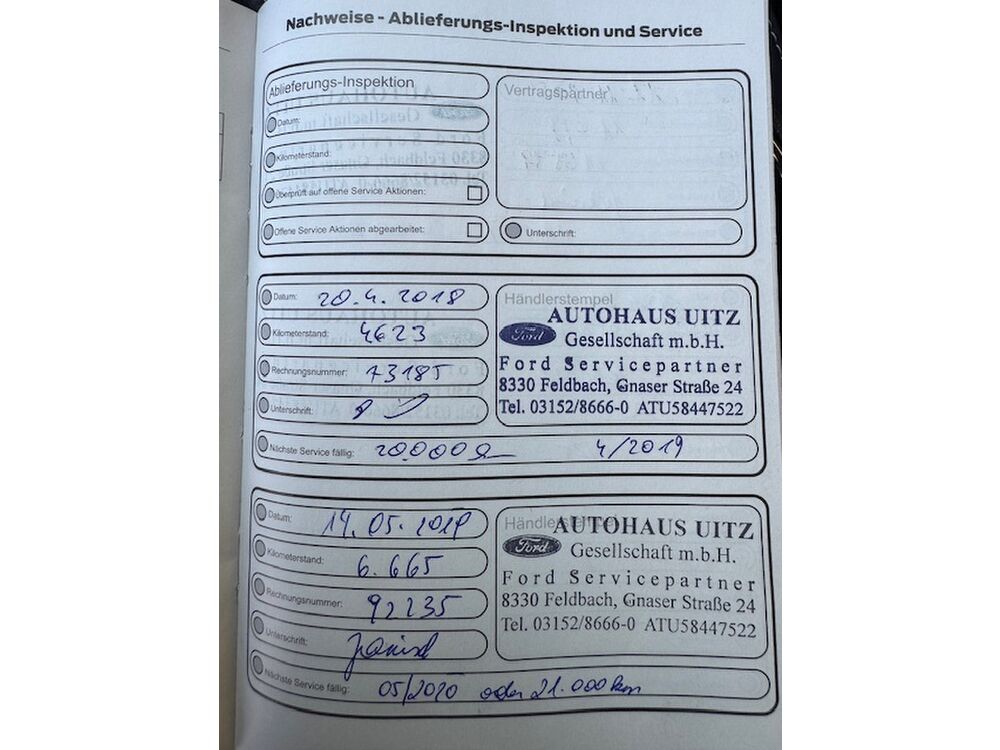 Nachweise - Ablieferungs-Inspektion und Service
Ablieferungs-Inspektion
Datum:
Kilometerstand:
Überprüft auf offene Service Aktionen:
Offene Service Aktionen abgearbeitet:
Vertragspartner
Unterschrift:
Datum: 20.4.2018
Kilometerstand: 4623
Rechnungsnummer: 73185
Unterschrift:
Nächste Service fällig: 20.000 4/2019
Händlerstempel
AUTOHAUS UITZ
Ford Gesellschaft m.b.H.
Ford Servicepartner
8330 Feldbach, Gnaser Straße 24
Tel. 03152/8666-0 ATU58447522
Datum: 14.05.2019
Kilometerstand: 6.665
Rechnungsnummer: 92235
Unterschrift:
Nächste Service fällig: 05/2020 oder 21.000 km
Händlerstempel
AUTOHAUS UITZ
Ford Gesellschaft m.b.H.
Ford Servicepartner
8330 Feldbach, Gnaser Straße 24
Tel. 03152/8666-0 ATU58447522